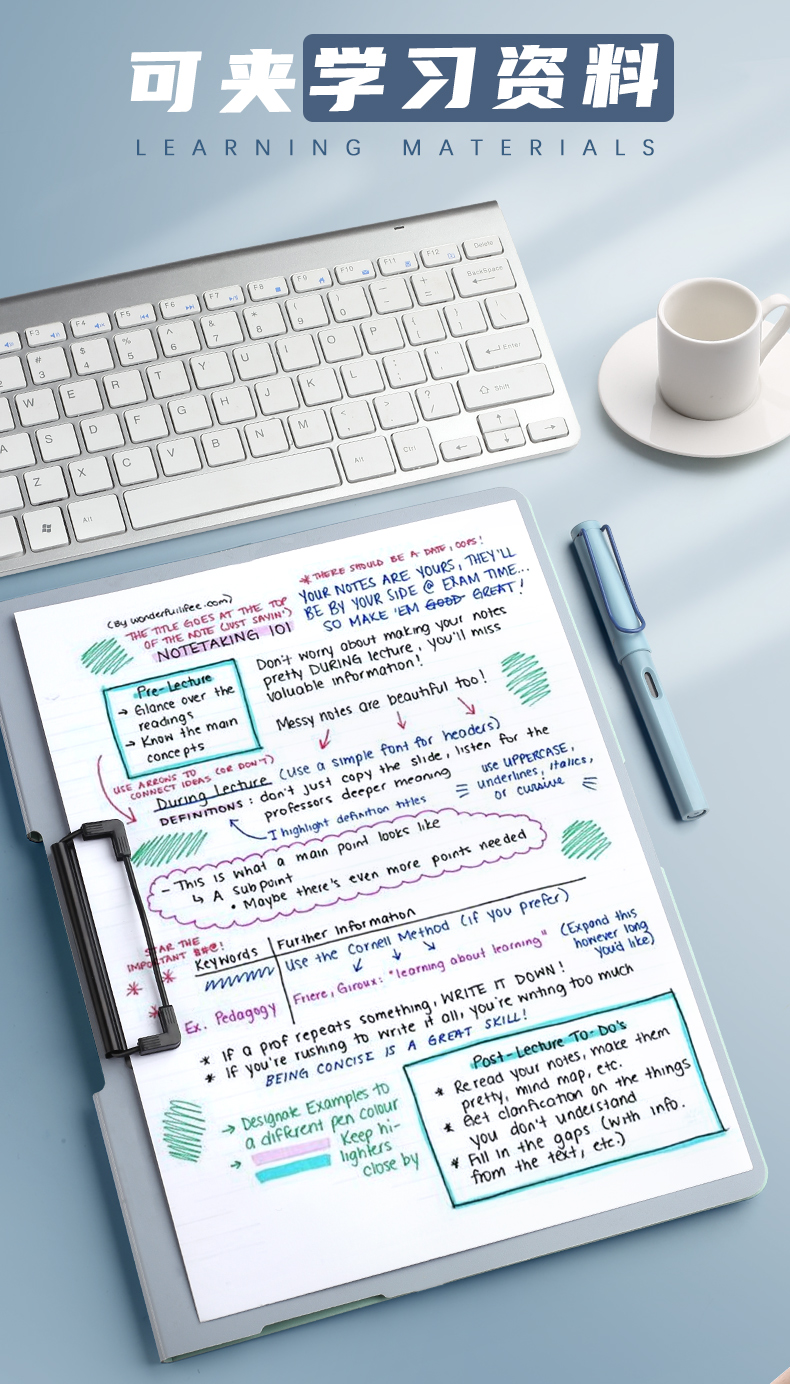 可夹学习资料
LEARNING MATERIALS
Delete
F3 F4 F5 F6 F7 F8 F9 F10 F11 F12
BackSpace
# 3 $ 4 % 5 ^ 6 & 7 * 8 ( 9 ) 0 — - + =
W E R T Y U I O P { [ } ] | \
Enter
A S D F G H J K L : ; " '
Shift
Z X C V B N M < , > . ? /
Alt Alt Ctrl
(By wonderfullifee.com)
THE TITLE GOES AT THE TOP
OF THE NOTE (JUST SAYIN')
NOTETAKING 101
*THERE SHOULD BE A DATE, OOPS!
YOUR NOTES ARE YOURS, THEY'LL
BE BY YOUR SIDE @ EXAM TIME...
SO MAKE 'EM GOOD GREAT!
Pre-Lecture
→ Glance over the
readings
→ Know the main
concepts
Don't worry about making your notes
pretty DURING lecture, you'll miss
valuable information!
Messy notes are beautiful too!
USE ARROWS TO
CONNECT IDEAS (OR DON'T)
During Lecture (use a simple font for headers)
DEFINITIONS: don't just copy the slide, listen for the
professors deeper meaning
I highlight definition titles
use UPPERCASE,
underlines, italics,
or cursive
- This is what a main point looks like
↳ A sub point
• Maybe there's even more points needed
STAR THE
IMPORTANT $#@!
Keywords
Further Information
Use the Cornell Method (if you prefer)
(Expand this
however long
you'd like)
Ex. Pedagogy
Friere, Giroux: "learning about learning"
* If a prof repeats something, WRITE IT DOWN!
* If you're rushing to write it all, you're writing too much
BEING CONCISE IS A GREAT SKILL!
→ Designate Examples to
a different pen colour
→ Keep hi-
lighters
close by
Post-Lecture To-Do's
* Reread your notes, make them
pretty, mind map, etc.
* Get clarification on the things
you don't understand
* Fill in the gaps (with info.
from the text, etc)